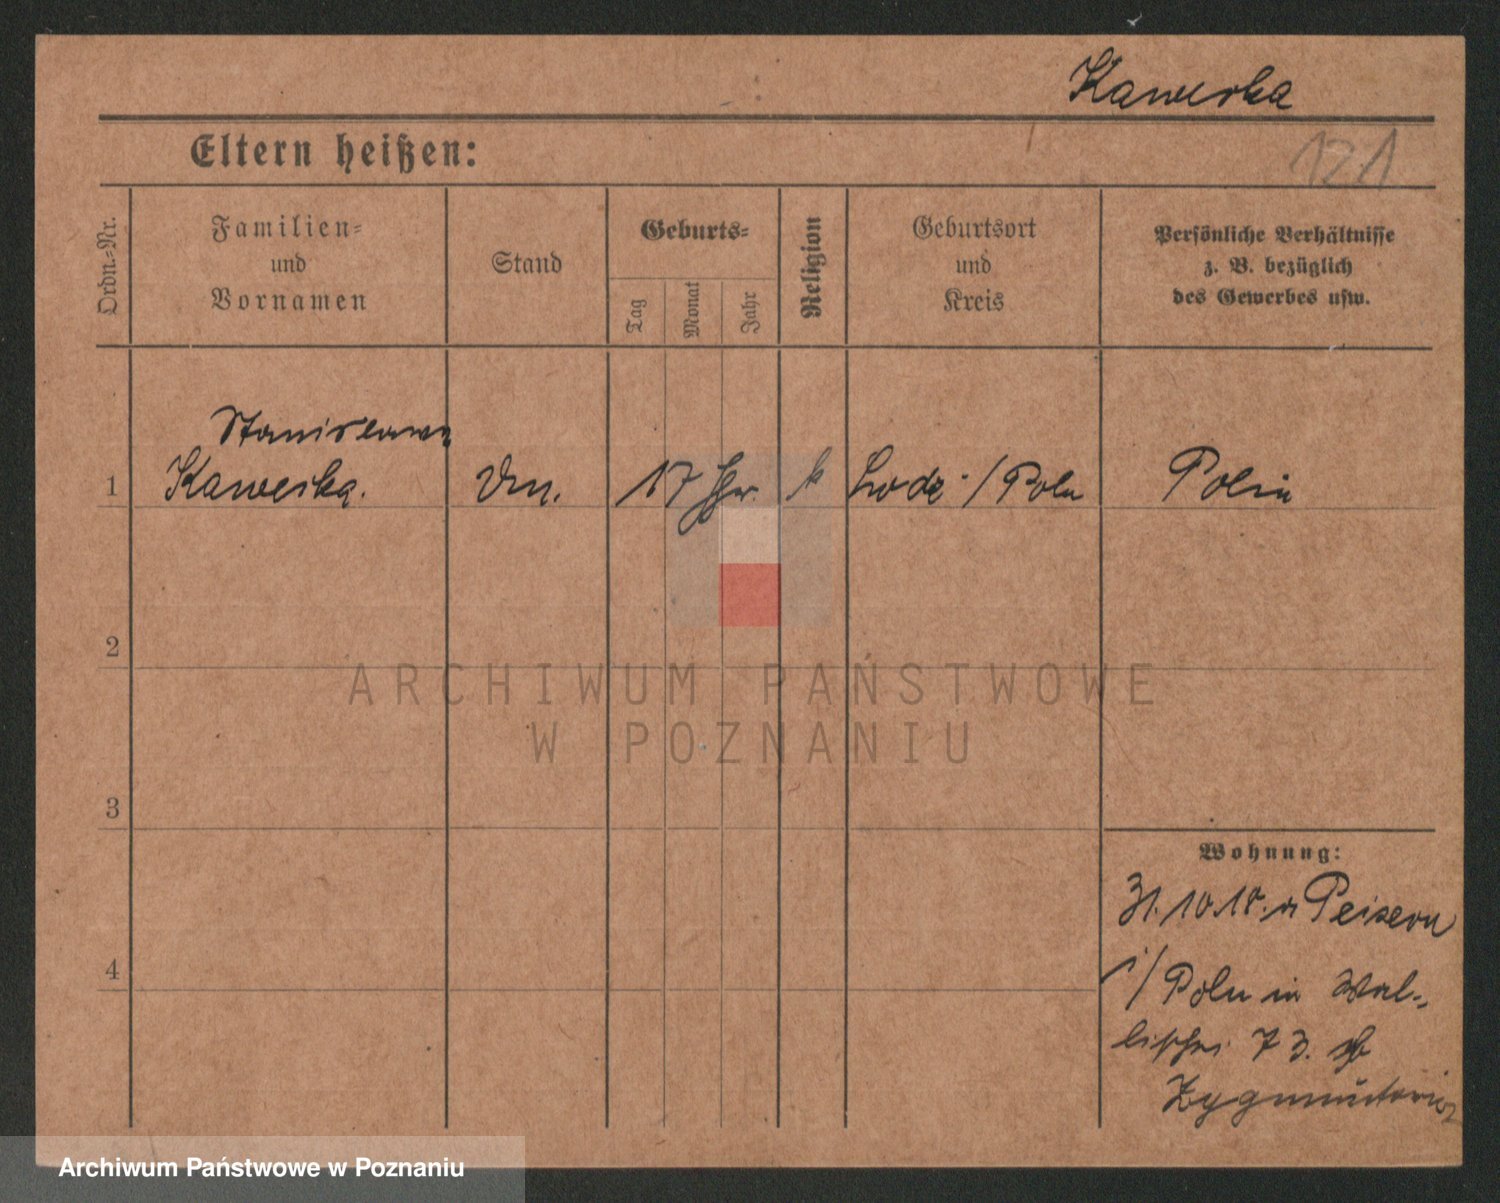 Kawecka
Eltern heißen:
121
Ordn.-Nr.
Familien-
und
Vornamen
Stand
Geburts-
Tag
Monat
Jahr
Religion
Geburtsort
und
Kreis
Persönliche Verhältnisse
z. B. bezüglich
des Gewerbes usw.
Stanislawa
1 Kawecka. 17 k Lodz i/Poln Polin
2
3
4
Wohnung:
31.10.18. Peisern
i/Poln in Wal-
lischei 73. b
Zygmuntowicz
ARCHIWUM PAŃSTWOWE
W POZNANIU
Archiwum Państwowe w Poznaniu